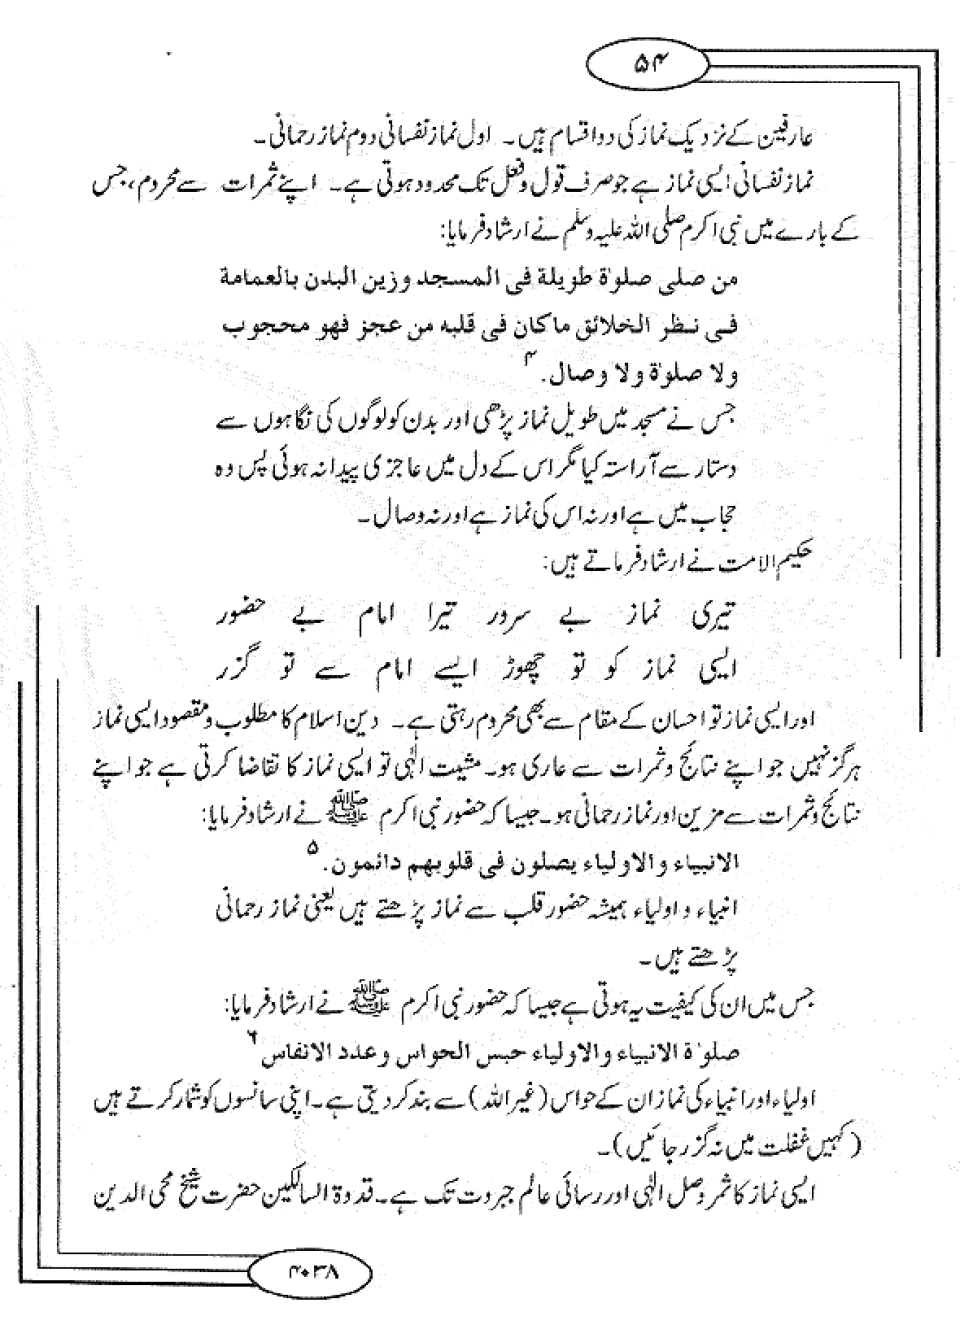 ۵۴
عارفین کے نزدیک نماز کی دو اقسام ہیں۔ اول نماز نفسانی دوم نماز رحمانی۔
نماز نفسانی ایسی نماز ہے جو صرف قول و فعل تک محدود ہوتی ہے۔ اپنے ثمرات سے محروم، جس
کے بارے میں نبی اکرم صلی اللہ علیہ وسلم نے ارشاد فرمایا:
من صلی صلوٰۃ طویلة فی المسجد وزین البدن بالعمامة
فی نظر الخلائق ماکان فی قلبه من عجز فهو محجوب
ولا صلوٰۃ ولا وصال۔۴
جس نے مسجد میں طویل نماز پڑھی اور بدن کو لوگوں کی نگاہوں سے
دستار سے آراستہ کیا مگر اس کے دل میں عاجزی پیدا نہ ہوئی پس وہ
حجاب میں ہے اور نہ اس کی نماز ہے اور نہ وصال۔
حکیم الامت نے ارشاد فرماتے ہیں:
تیری نماز بے سرور تیرا امام بے حضور
ایسی نماز کو تو چھوڑ ایسے امام سے تو گزر
اور ایسی نماز تو احسان کے مقام سے بھی محروم رہتی ہے۔ دین اسلام کا مطلوب و مقصود ایسی نماز
ہرگز نہیں جو اپنے نتائج و ثمرات سے عاری ہو۔ مشیت الٰہی تو ایسی نماز کا تقاضا کرتی ہے جو اپنے
نتائج و ثمرات سے مزین اور نماز رحمانی ہو۔ جیسا کہ حضور نبی اکرم ﷺ نے ارشاد فرمایا:
الانبیاء والاولیاء یصلون فی قلوبهم دائمون۔۵
انبیاء و اولیاء ہمیشہ حضور قلب سے نماز پڑھتے ہیں یعنی نماز رحمانی
پڑھتے ہیں۔
جس میں ان کی کیفیت یہ ہوتی ہے جیسا کہ حضور نبی اکرم ﷺ نے ارشاد فرمایا:
صلوٰۃ الانبیاء والاولیاء حبس الحواس وعدد الانفاس۶
اولیاء اور انبیاء کی نماز ان کے حواس (غیر اللہ) سے بند کر دیتی ہے۔ اپنی سانسوں کو شمار کرتے ہیں
(کہیں غفلت میں نہ گزر جائیں)۔
ایسی نماز کا ثمر وصل الٰہی اور رسائی عالم جبروت تک ہے۔ قدوۃ السالکین حضرت شیخ محی الدین
۴۰۳۸